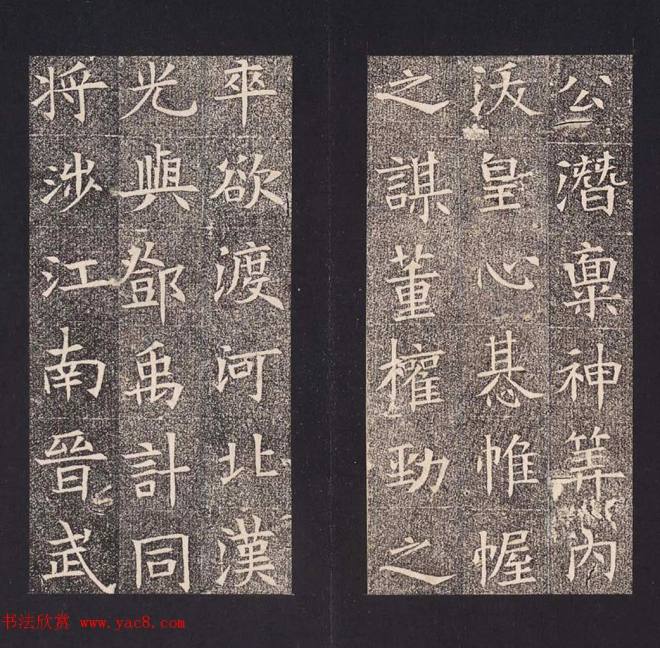 公潛稟神筭內
沃皇心惎帷幄
之謀董榷勁之
卒欲渡河北漢
光與鄧禹計同
將涉江南晉武
书法欣赏 www.yac8.com